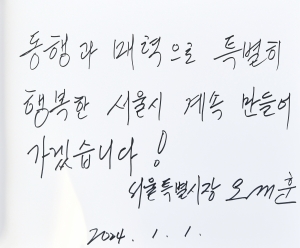 동행과 매력으로 특별히
행복한 서울시 계속 만들어
가겠습니다!
서울특별시장 오세훈
2024. 1. 1.